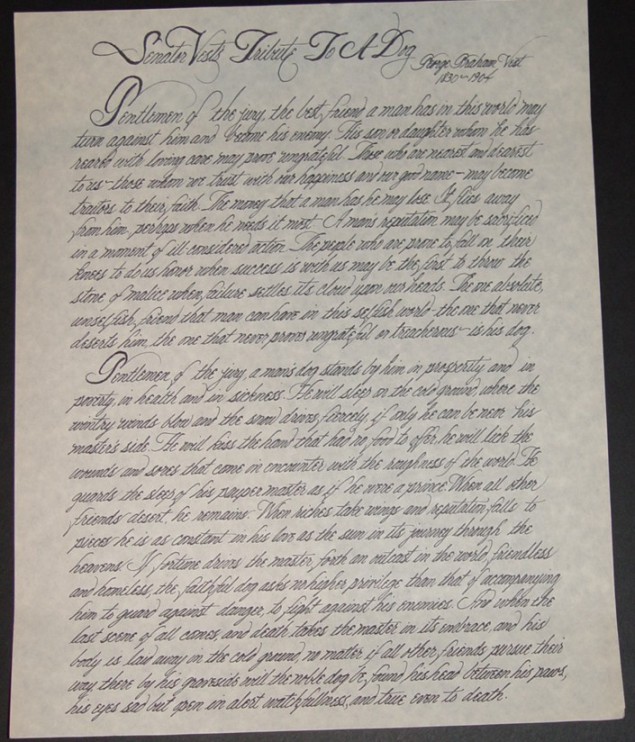 Senator Vest's Tribute To A Dog
George Graham Vest
1830~1904
Gentlemen of the jury, the best friend a man has in this world may
turn against him and become his enemy. His son or daughter whom he has
reared with loving care may prove ungrateful. Those who are nearest and dearest
to us~those whom we trust with our happiness and our good name~may become
traitors to their faith. The money that a man has he may lose. It flies away
from him, perhaps when he needs it most. A mans reputation may be sacrificed
in a moment of ill considered action. The people who are prone to fall on their
knees to do us honor when success is with us may be the first to throw the
stone of malice when failure settles its cloud upon our heads. The one absolute,
unselfish friend that man can have in this selfish world~the one that never
deserts him, the one that never proves ungrateful or treacherous~is his dog.
Gentlemen of the jury, a mans dog stands by him in prosperity and in
poverty, in health and in sickness. He will sleep on the cold ground, where the
wintry winds blow and the snow drives fiercely, if only he can be near his
master's side. He will kiss the hand that has no food to offer, he will lick the
wounds and sores that come in encounter with the roughness of the world. He
guards the sleep of his pauper master as if he were a prince. When all other
friends desert, he remains. When riches take wings and reputation falls to
pieces he is as constant in his love as the sun in its journey through the
heavens. If fortune drives the master forth an outcast in the world, friendless
and homeless, the faithful dog asks no higher privilege than that of accompanying
him to guard against danger, to fight against his enemies. And when the
last scene of all comes, and death takes the master in its embrace, and his
body is laid away in the cold ground, no matter if all other friends pursue their
way, there by his graveside will the noble dog be found, his head between his paws,
his eyes sad but open in alert watchfullness, and true even to death.